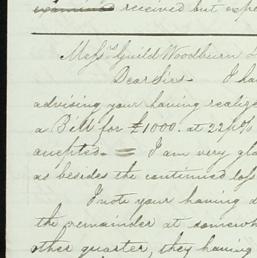 received but expe
Mess.rs Guild Woodburn &
Dear Sirs - I ha
advising your having realize
a Bill for £1000. at 22
accepted. = I am very gla
as besides the continued loss
I note your having d
the remainder at somewh
other quarter, they having